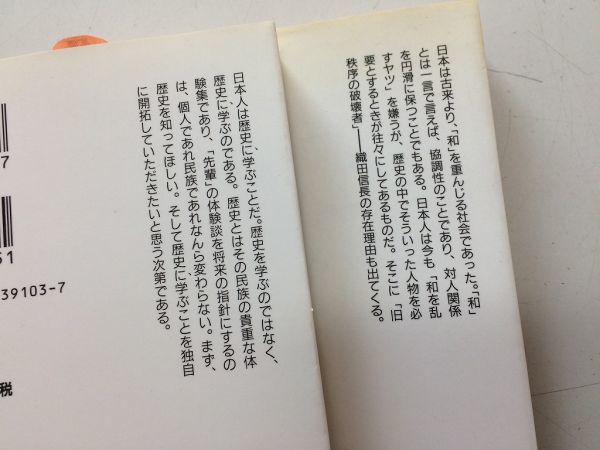 日本は古来より、「和」を重んじる社会であった。「和」
とは一言で言えば、協調性のことであり、対人関係
を円滑に保つことでもある。日本人は今も、「和を乱
すヤツ」を嫌うが、歴史の中でそういった人物を必
要とするときが往々にしてあるものだ。そこに「旧
秩序の破壊者」――織田信長の存在理由も出てくる。
日本人は歴史に、学ぶことだ。歴史を学ぶのではなく、
歴史に、学ぶのである。歴史とはその民族の貴重な体
験集であり、「先輩」の体験談を将来の指針にするの
は、個人であれ民族であれなんら変わらない。まず、
歴史を知ってほしい。そして歴史に、学ぶことを独自
に開拓していただきたいと思う次第である。
7
51
39103-7
税